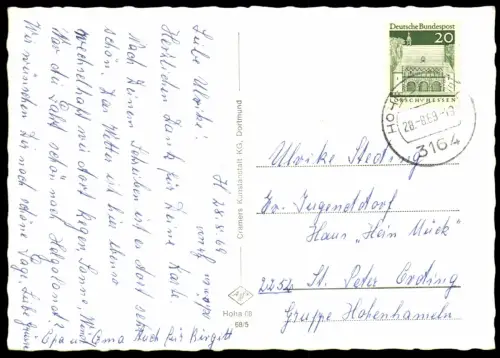 H 28.8.69
Liebe Ulrike!
Herzlichen Dank für Deine Karte.
Nach Deinem Schreiben ist es dort sehr
schön. Das Wetter ist hier ebenso
wechselhaft wie dort Regen Sonne, Wind
War die Fahrt schön nach Helgoland?
Wir wünschen Dir noch schöne Tage. Liebe Grüsse
Opa und Oma Auch für Birgitt
Cramers Kunstanstalt KG, Dortmund
Hoha 69
68/5
Deutsche Bundespost
20
LORSCH/HESSEN
28.-8.69-15
3164
Ulrike Steding
Jugenddorf
Haus „Hein Mück"
2252 St. Peter Ording
Gruppe Hohenhameln